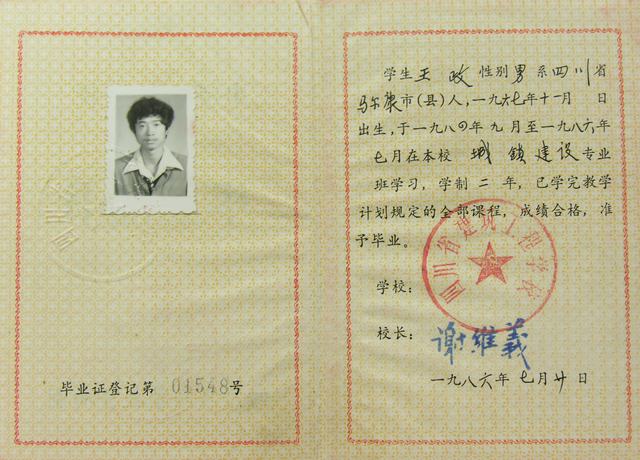 毕业证登记第 01548号
学生王政 性别男 系四川省
马尔康市(县)人,一九六七年十一月 日
出生,于一九八四年 九月至一九八六年
七月在本校 城镇建设专业
班学习,学制 二 年,已学完教学
计划规定的全部课程,成绩合格,准
予毕业。
四川省建筑工程学校
学校:
校长: 谢维義
一九八六年 七月廿日